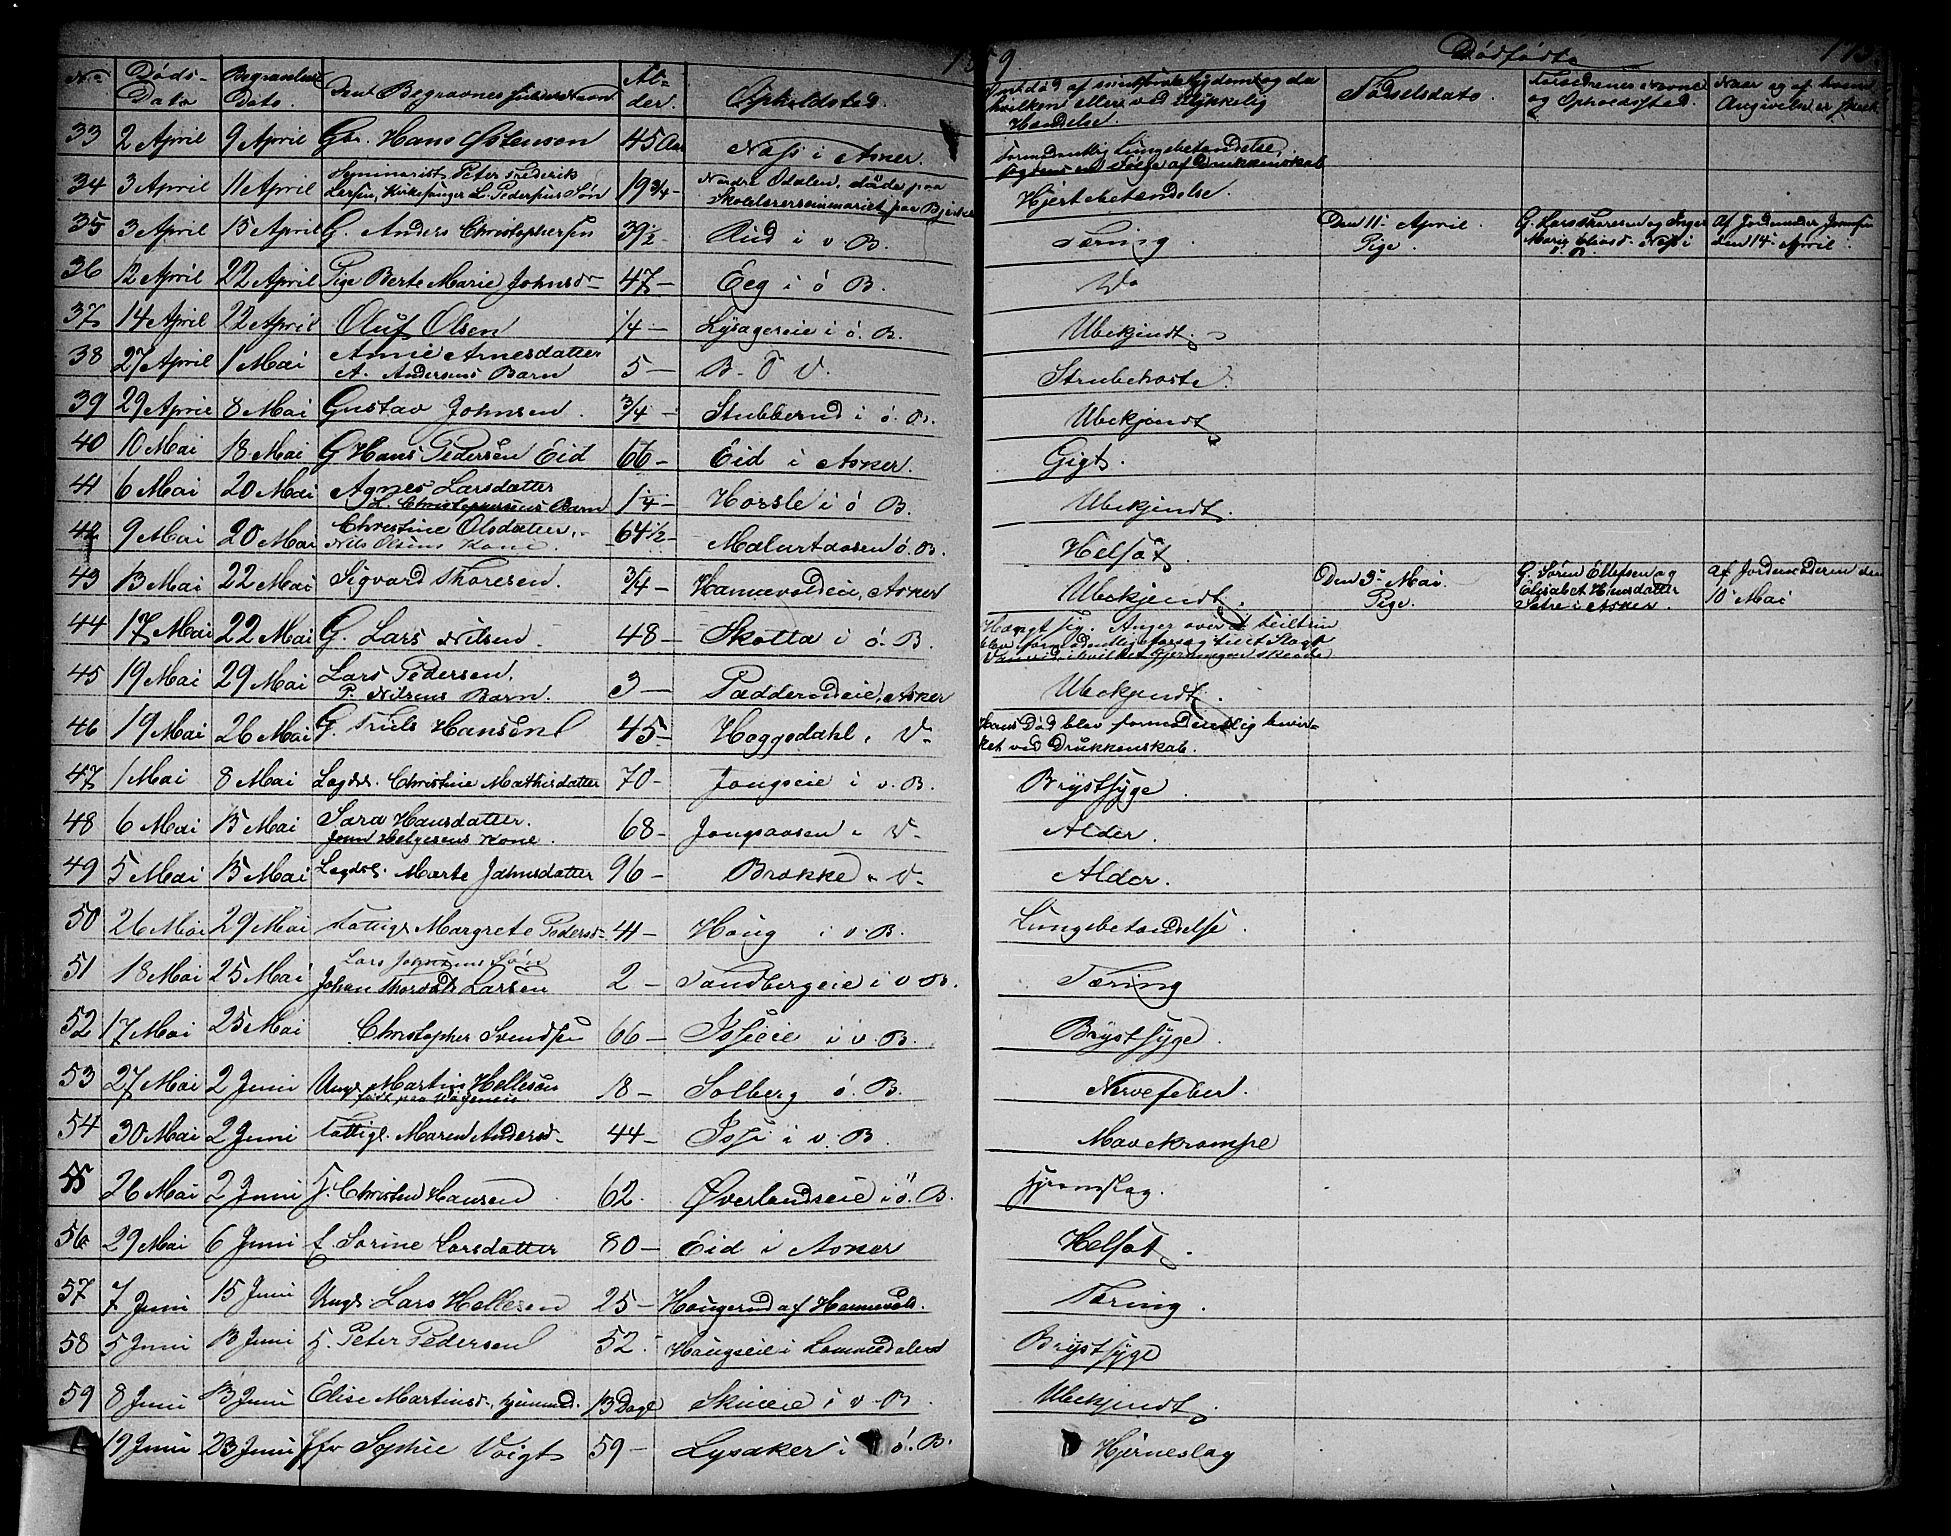 Dødfødte
No Døds-Dato Begravelses Dato Den Begravnes fulde Navn Al-der. Opholdsted. hvilken eller ved Ulykkelig Hændelse. Fødselsdato. Forældrenes Navne og Opholdssted. Naar og af hvem Angivelse er skeet
33 2 April 9 April Hans Østensen 45 Aar Næss i Asker. Formodentlig Lungebetændelse,
34 3 April 11 April Seminarist Peter Frederik 19 3/4 — Nordre Odalen, døde paa Hjertebetændelse.
35 3 April 15 April G. Anders Christophersen 39 1/2 — Rud i v. B. Tæring. Den 11. April. Pige. den 14. April.
36 12 April 22 April Pige Berte Marie Johnsd— 47 — Eeg i ø B. Do
37 14 April 22 April Oluf Olsen 1/4 — Lysagereie i ø. B. Ubekjendt.
38 27 April 1 Mai Anne Arnesdatter
A. Andersens Barn 5 — B. V. Strubehoste.
39 29 April 8 Mai Gustav Johnsen. 3/4 — Stubberud i ø. B. Ubekjendt
40 10 Mai 18 Mai G Hans Pedersen Eid 66 — Eid i Asker. Gigt.
41 6 Mai 20 Mai Agnes Larsdatter
L. Christophersens Barn 1/4 — Horsle i ø B. Ubekjendt.
42 9 Mai 20 Mai Christine Olsdatter,
Nils Olsens Kone. 64 1/2 — ø. B. Helsot.
43 13 Mai 22 Mai Sigvard Thoresen. 3/4 — Hannevoldeie, Asker Ubekjendt. Den 5. Mai. Pige. G. Søren Ellefsen og Elisabet Hansdatter i Asker. af Jordemoderen den 10 Mai
44 17 Mai 22 Mai G. Lars Nilsen 48 — Skotta i ø. B. Hængt sig. Anger over et
45 19 Mai 29 Mai Lars Pedersen.
P. Nilsens Barn. 3 — Asker Ubekjendt.
46 19 Mai 26 Mai G. Truls Hansen 45 — V— Hans Død blev formodentlig bevir-
ket ved Drukkenskab.
47 1 Mai 8 Mai Lægdsl. Christine Mathisdatter 70 — Jongseie i v. B. Brystsyge.
48 6 Mai 15 Mai Sara Hansdatter.
John Helgesens Kone. 68 — Jongsaasen " V— Alder.
49 5 Mai 15 Mai Lægdsl. Marte Johnsdatter 96 — Brække " V— Alder.
50 26 Mai 29 Mai Fattigl. Margrete Pedersd— 41 — Haug i v. B. Lungebetændelse.
51 18 Mai 25 Mai Lars Johnsens Søn
Johan Larsen 2 — Sandbergeie i v B. Tæring
52 17 Mai 25 Mai Christopher Svendsen 66 — i v. B. Brystsyge.
53 27 Mai 2 Juni Ungk. Martin Hellesen 18 — Solberg ø. B. Nervefeber.
54 30 Mai 2 Juni Fattigl. Maren Andersd— 44 — i v. B. Mavekrampe
55 26 Mai 2 Juni Christen Hansen 62. Øverlandseie i ø. B. Hjerneslag.
56 29 Mai 6 Juni f. Sorine Larsdatter 80 — Eid i Asker Helsot.
57 7 Juni 15 Juni Ungk. Lars Hellesen 25 — Haugerud af Hannevold. Tæring.
58 5 Juni 13 Juni Peter Pedersen 52. Haugseie i Lommedalen Brystsyge
59 8 Juni 13 Juni Elise Martinsd—, hjemmed. 13 Dage Skuieie i v. B. Ubekjendt.
19 Juni 23 Juni Sophie Voigt 59 — Lysaker i ø. B. Hjerneslag